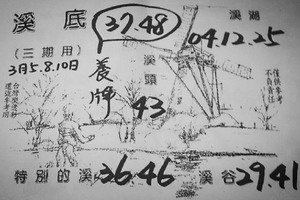 溪底 37.48 溪湖
(三期用) 04.12.25
3月5.8.10日 養牌 溪頭
43
僅供參考
不負責任
特別的溪 36.46 溪谷 29.41